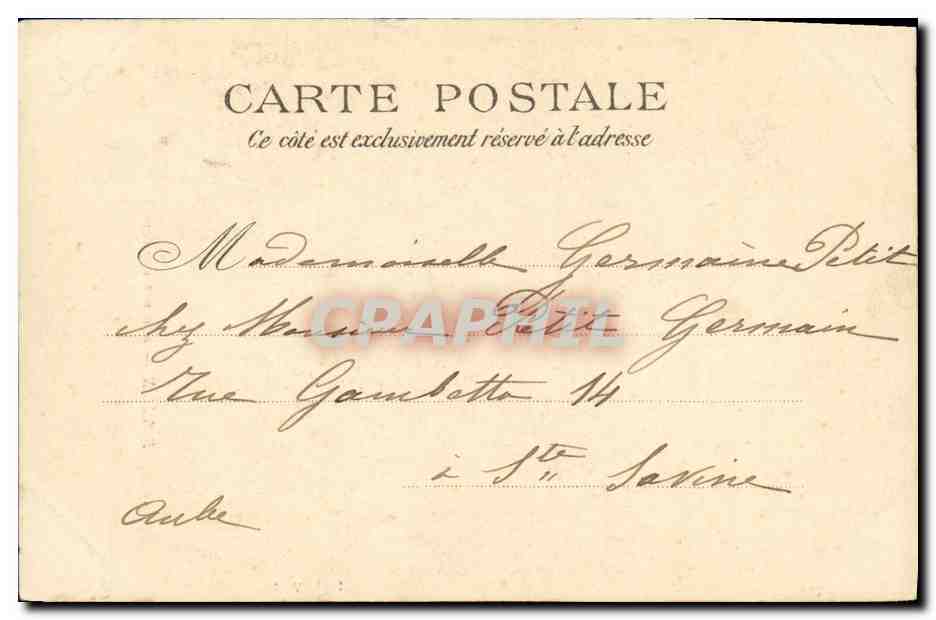 CARTE POSTALE
Ce côté est exclusivement réservé à l'adresse
Mademoiselle Germaine Petit
chez Monsieur Petit Germain
CPAPHIL
Rue Gambetta 14
à Ste Savine
Aube